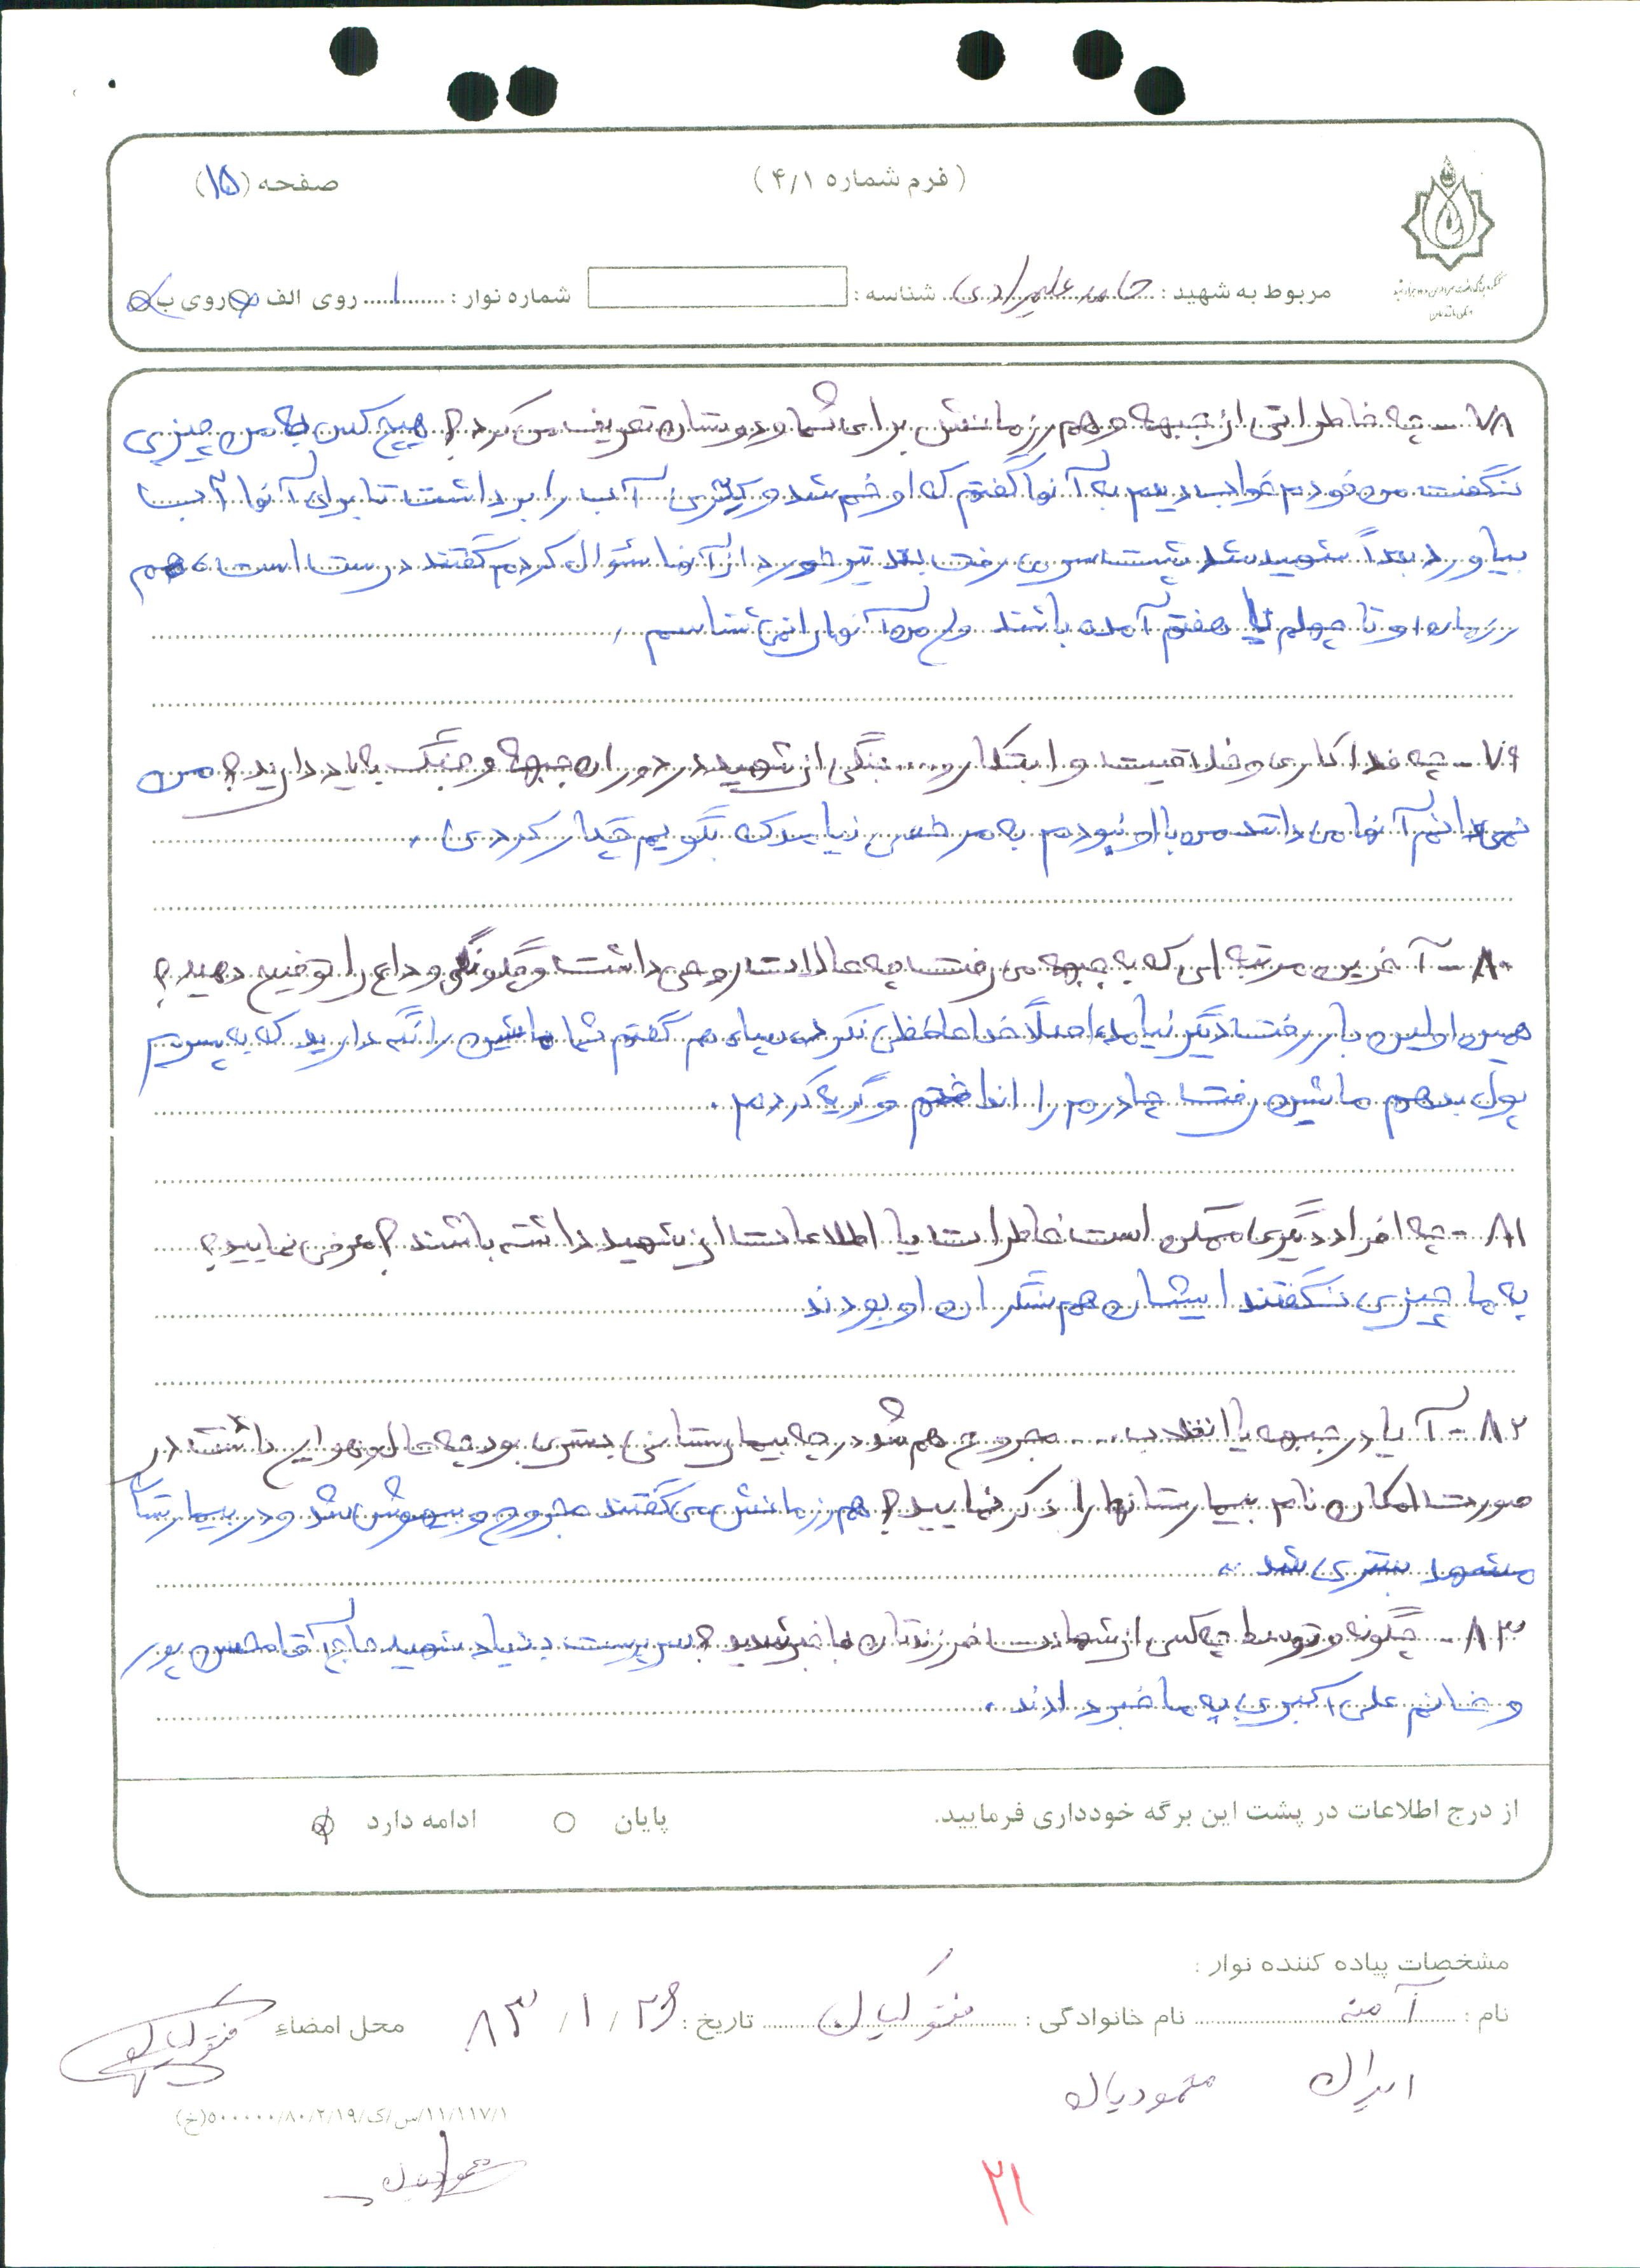 (فرم شماره ۴/۱)
صفحه (۱۵)
مربوط به شهید : حامد علیمرادی شناسه : شماره نوار : ۱ روی الف روی ب
۷۸ - چه خاطراتی از جبهه و هم رزمانش برای شما و دوستان تعریف می کرد؟ هیچ کس به من چیزی
نگفت من خودم خواب دیدم به آنها گفتم که او خم شد و کتری آب را برداشت تا برای آنها آب
بیاورد بعداً شهید شد پشت سری رفت بعد تیر خورد از آنها سئوال کردم گفتند درست است، هم
رزمان او تا چهلم تا هفتم آمده باشند ولی من آنها را نمی شناسم .
۷۹ - چه فداکاری و خلاقیت و ابتکار و ... جنگی از شهید در دوران جبهه و جنگ به یاد دارید؟ من
نمی دانم آنها می دانند من با او نبودم به مرخصی نیامد که بگویم چکار کردی .
۸۰ - آخرین مرتبه ای که به جبهه می رفت چه حالات روحی داشت و چگونگی وداع را توضیح دهید؟
همین اولین بار رفت دیگر نیامد، اصلاً خداحافظی نکرد، به سپاه هم گفتم شما ماشین را نگه دارید که به پسرم
پول بدهم ماشین رفت چادرم را انداختم و گریه کردم .
۸۱ - چه افراد دیگری ممکن است خاطرات یا اطلاعات از شهید داشته باشند؟ معرفی نمایید؟
به ما چیزی نگفتند ایشان هم سنگران او بودند
۸۲ - آیا در جبهه یا انقلاب ... مجروح هم شد در چه بیمارستانی بستری بود چه حال و هوایی داشت در
صورت امکان نام بیمارستانها را ذکر نمایید؟ هم رزمانش می گفتند مجروح و بیهوش شد و در بیمارستان
مشهد بستری شد .
۸۳ - چگونه و توسط چه کسی از شهادت فرزندتان با خبر شدید؟ سرپرست بنیاد شهید حاج آقا محسن پور
و خانم علی اکبری به ما خبر دادند .
از درج اطلاعات در پشت این برگه خودداری فرمایید. پایان ادامه دارد
مشخصات پیاده کننده نوار :
نام : آمنه نام خانوادگی : تاریخ : ۲۹ / ۱ / ۸۳ محل امضاء
ایران محمودیان
۱۱/۱۱۷/۱/س/ک/۸۰/۲/۱۹/۵۰۰۰۰۰(خ)
۲۱